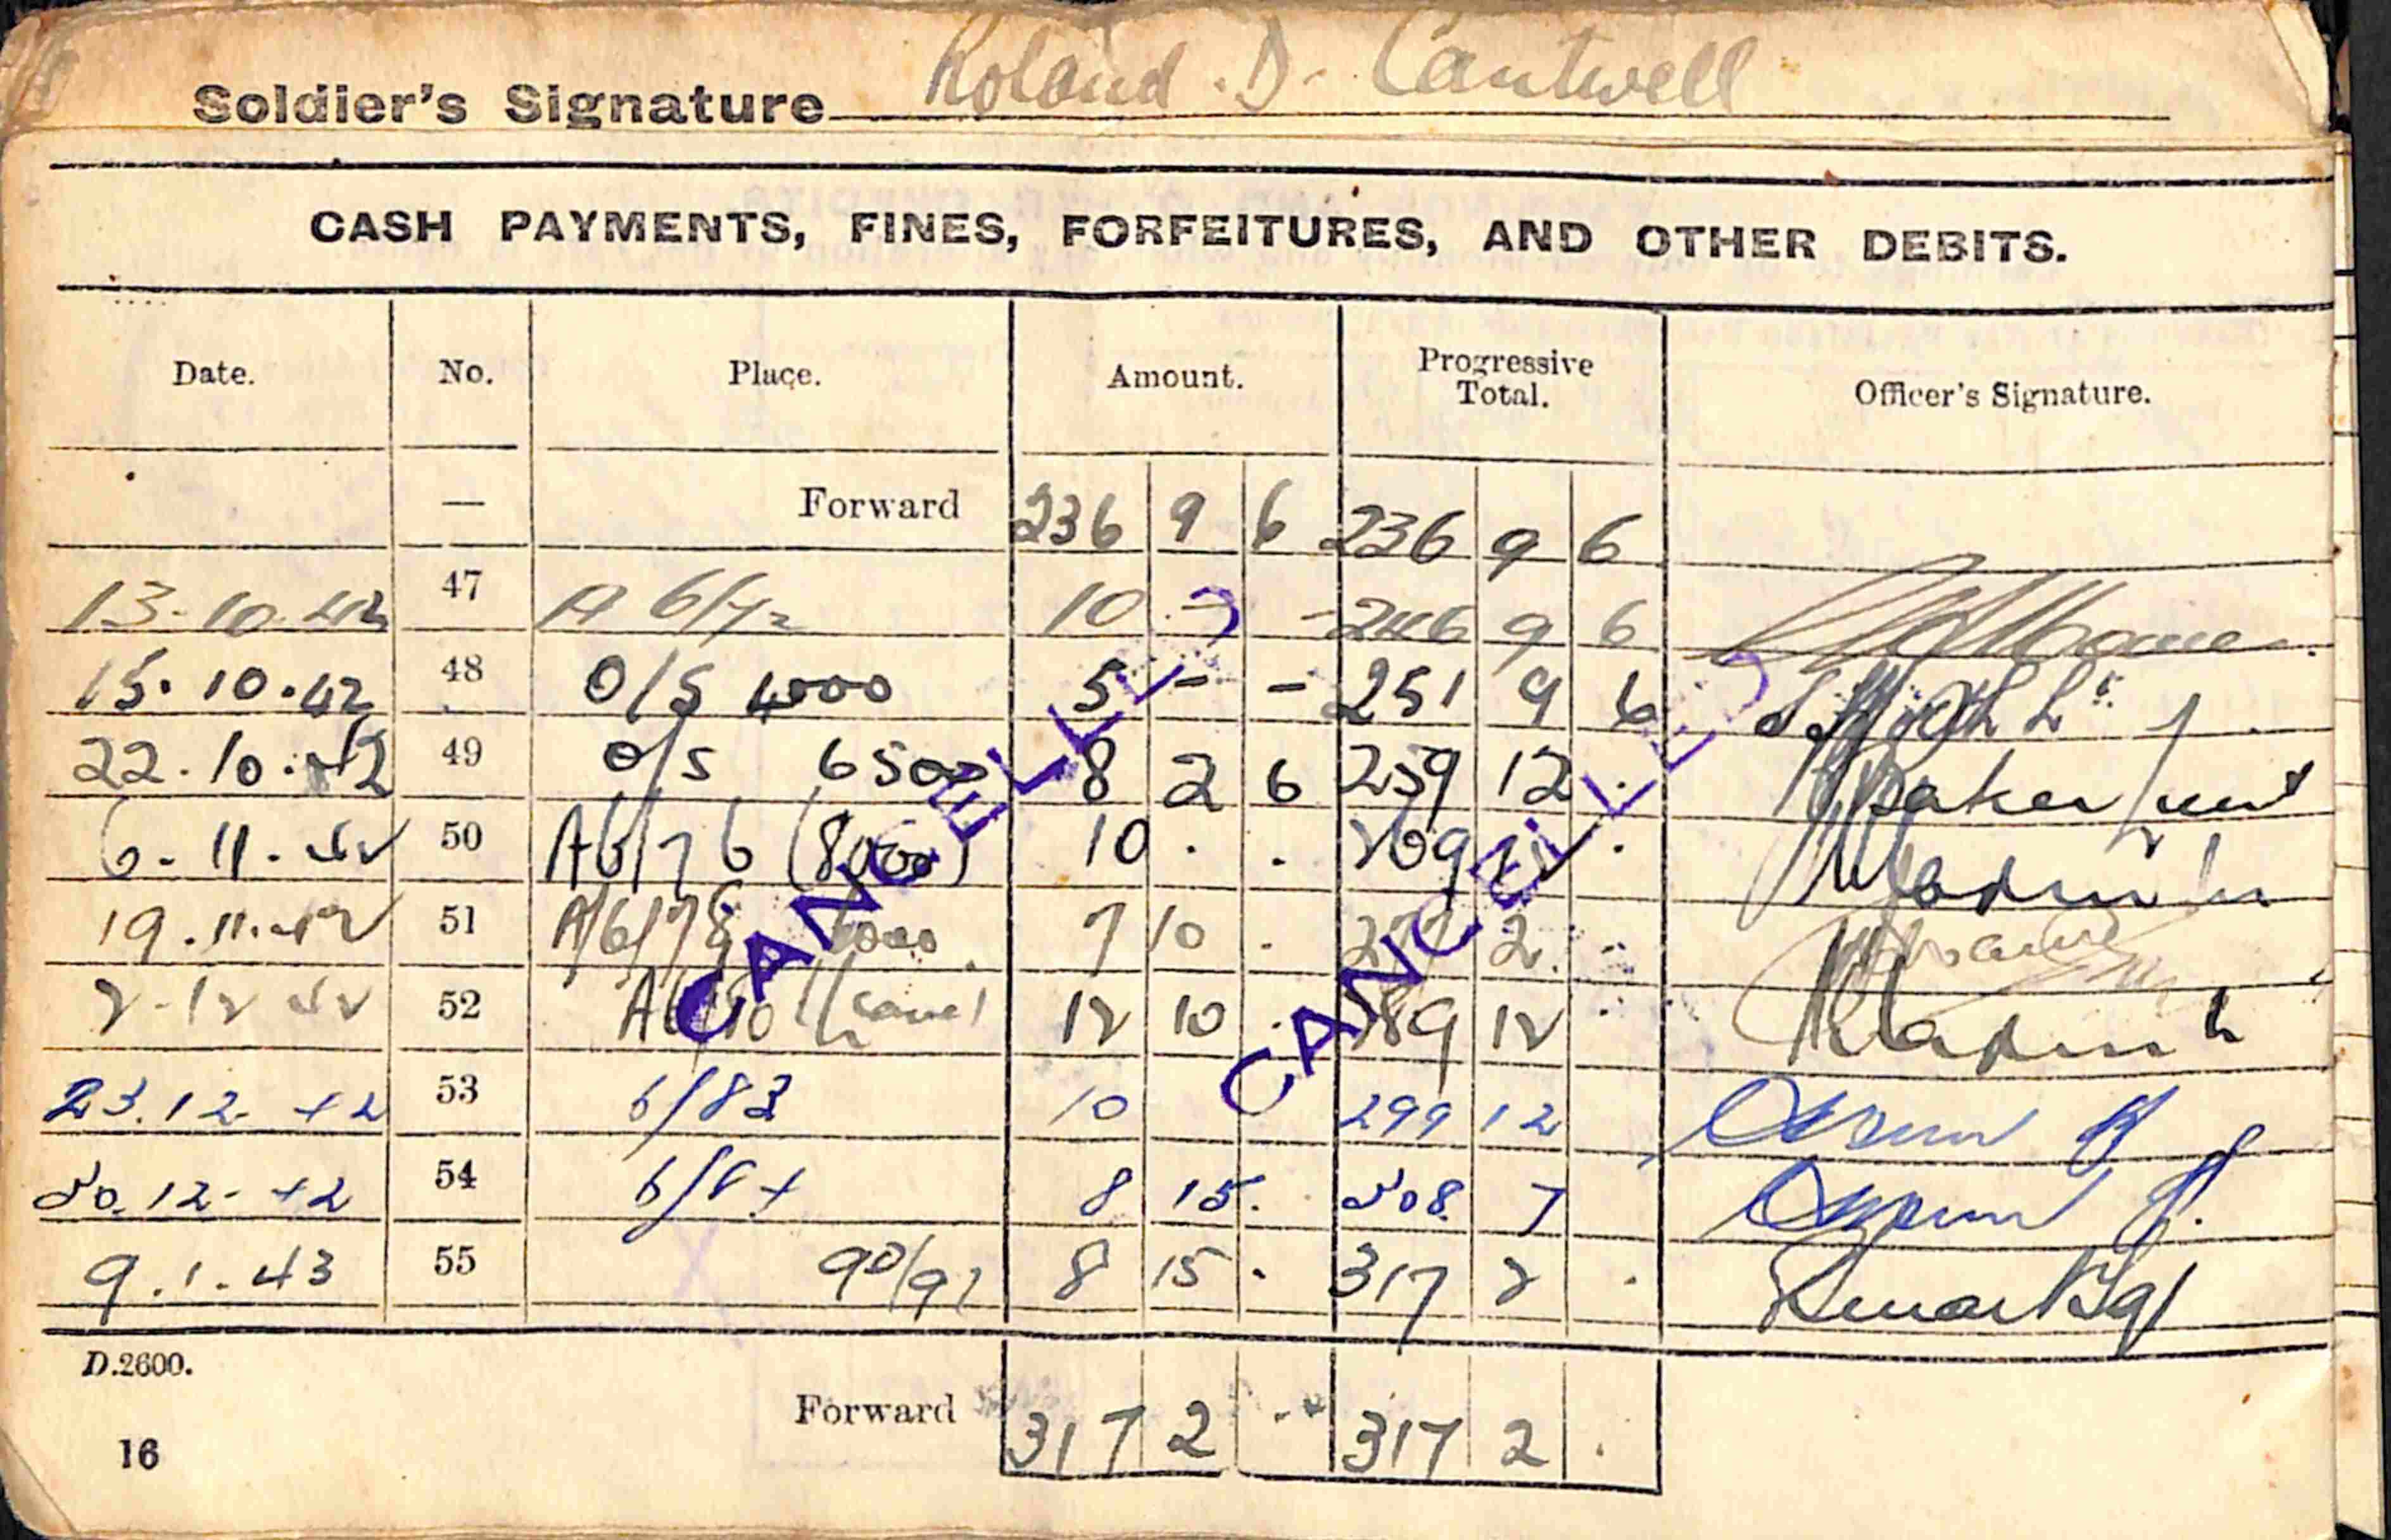 Soldier's Signature Roland. D. Cantwell
CASH PAYMENTS, FINES, FORFEITURES, AND OTHER DEBITS.
Date. No. Place. Amount. Progressive Total. Officer's Signature.
— Forward 236 9 6 236 9 6
13-10-42 47 A 6/72 10 - - 246 9 6
15.10.42 48 O/S 4000 5 - - 251 9 6
22.10.42 49 O/S 6500 8 2 6 259 12 . Baker
6-11-42 50 A6/76 (8000) 10 . . 269 12 .
19.11.42 51 A/6/78 6000 7 10 . 277 2 .
2-12 42 52 12 10 . 289 12 .
23.12.42 53 6/83 10 299 12
30.12.42 54 6/84 8 15. 308 7
9.1.43 55 90/91 8 15 . 317 2 .
CANCELLED
CANCELLED
D.2600.
Forward 317 2 . 317 2 .
16